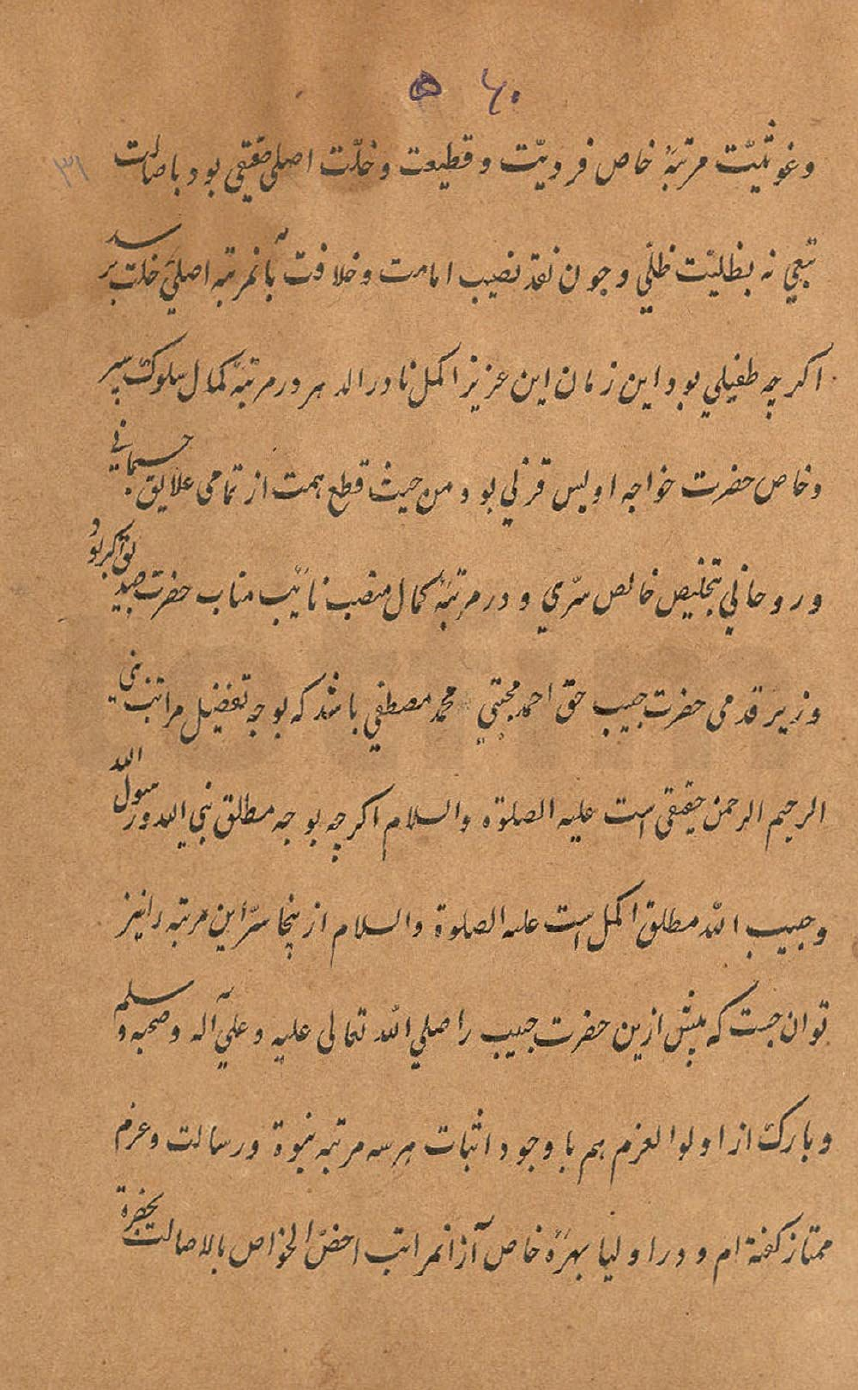 ۶۰
۳۱
وغوثیّت مرتبهٔ خاص فردیّت و قطبیعت و خلّت اصلی حقیقی بود باصالت
تبعی نه بظلیّت ظلّی و چون نقد نصیب امامت و خلافت بآنمرتبه اصلیّ خلت برسد
اکرچه طفیلی بود این زمان این عزیز اکمل نادر الدهر در مرتبهٔ کمال سلوک سیر
وخاص حضرت خواجه اویس قرنی بود و من حیث قطع همت از تمامی علایق جسمانی
و روحانی بتخلیص خالص سرّی و در مرتبهٔ کمال منصب نایٔب مناب حضرت صدیق اکبر بود
وزیر قدمی حضرت حبیب حق احمد مجتبی محمد مصطفی باشد که بوجه تفضیل مراتب نبی
الرحیم الرحمن حقیقی است علیه الصلوة والسلام اکرچه بوجه مطلق نبی الله ورسول الله
وحبیب الله مطلق اکمل است علیه الصلوة والسلام ازینجا سرّ این مرتبه را نیز
توان جست که پیش ازین حضرت حبیب را صلی الله تعالی علیه وعلی آله وصحبه وسلم
وبارک از اولوالعزم هم با وجود اثبات هر سه مرتبه نبوة ورسالت وعزم
ممتاز کفته ام و در اولیا بهرهٔ خاص آز انمراتب اخصّ الخواص بالاصالت بحضرة